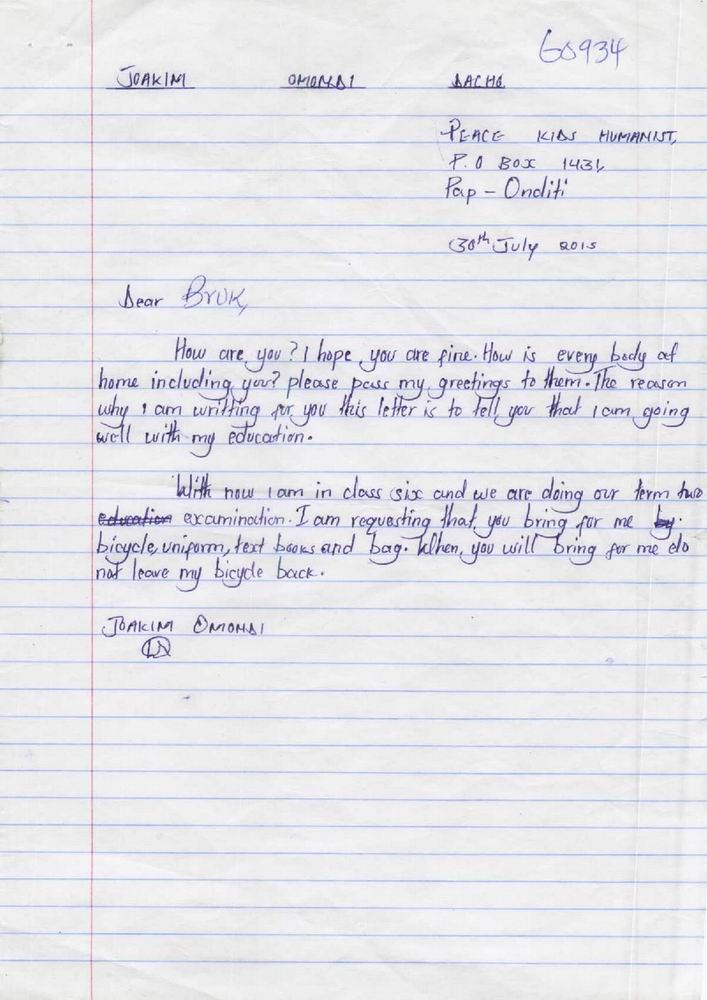 60934
JOAKIM OMONDI DACHO
PEACE KIDS HUMANIST,
P.O BOX 1431,
Pap - Onditi
30th July 2015
Dear BRUK,
How are you? I hope you are fine. How is every body at
home including you? please pass my greetings to them. The reason
why I am writting for you this letter is to tell you that I am going
well with my education.
With now I am in class six and we are doing our term two
education examination. I am requesting that you bring for me by.
bicycle, uniform, text books and bag. When, you will bring for me do
not leave my bicycle back.
JOAKIM OMONDI